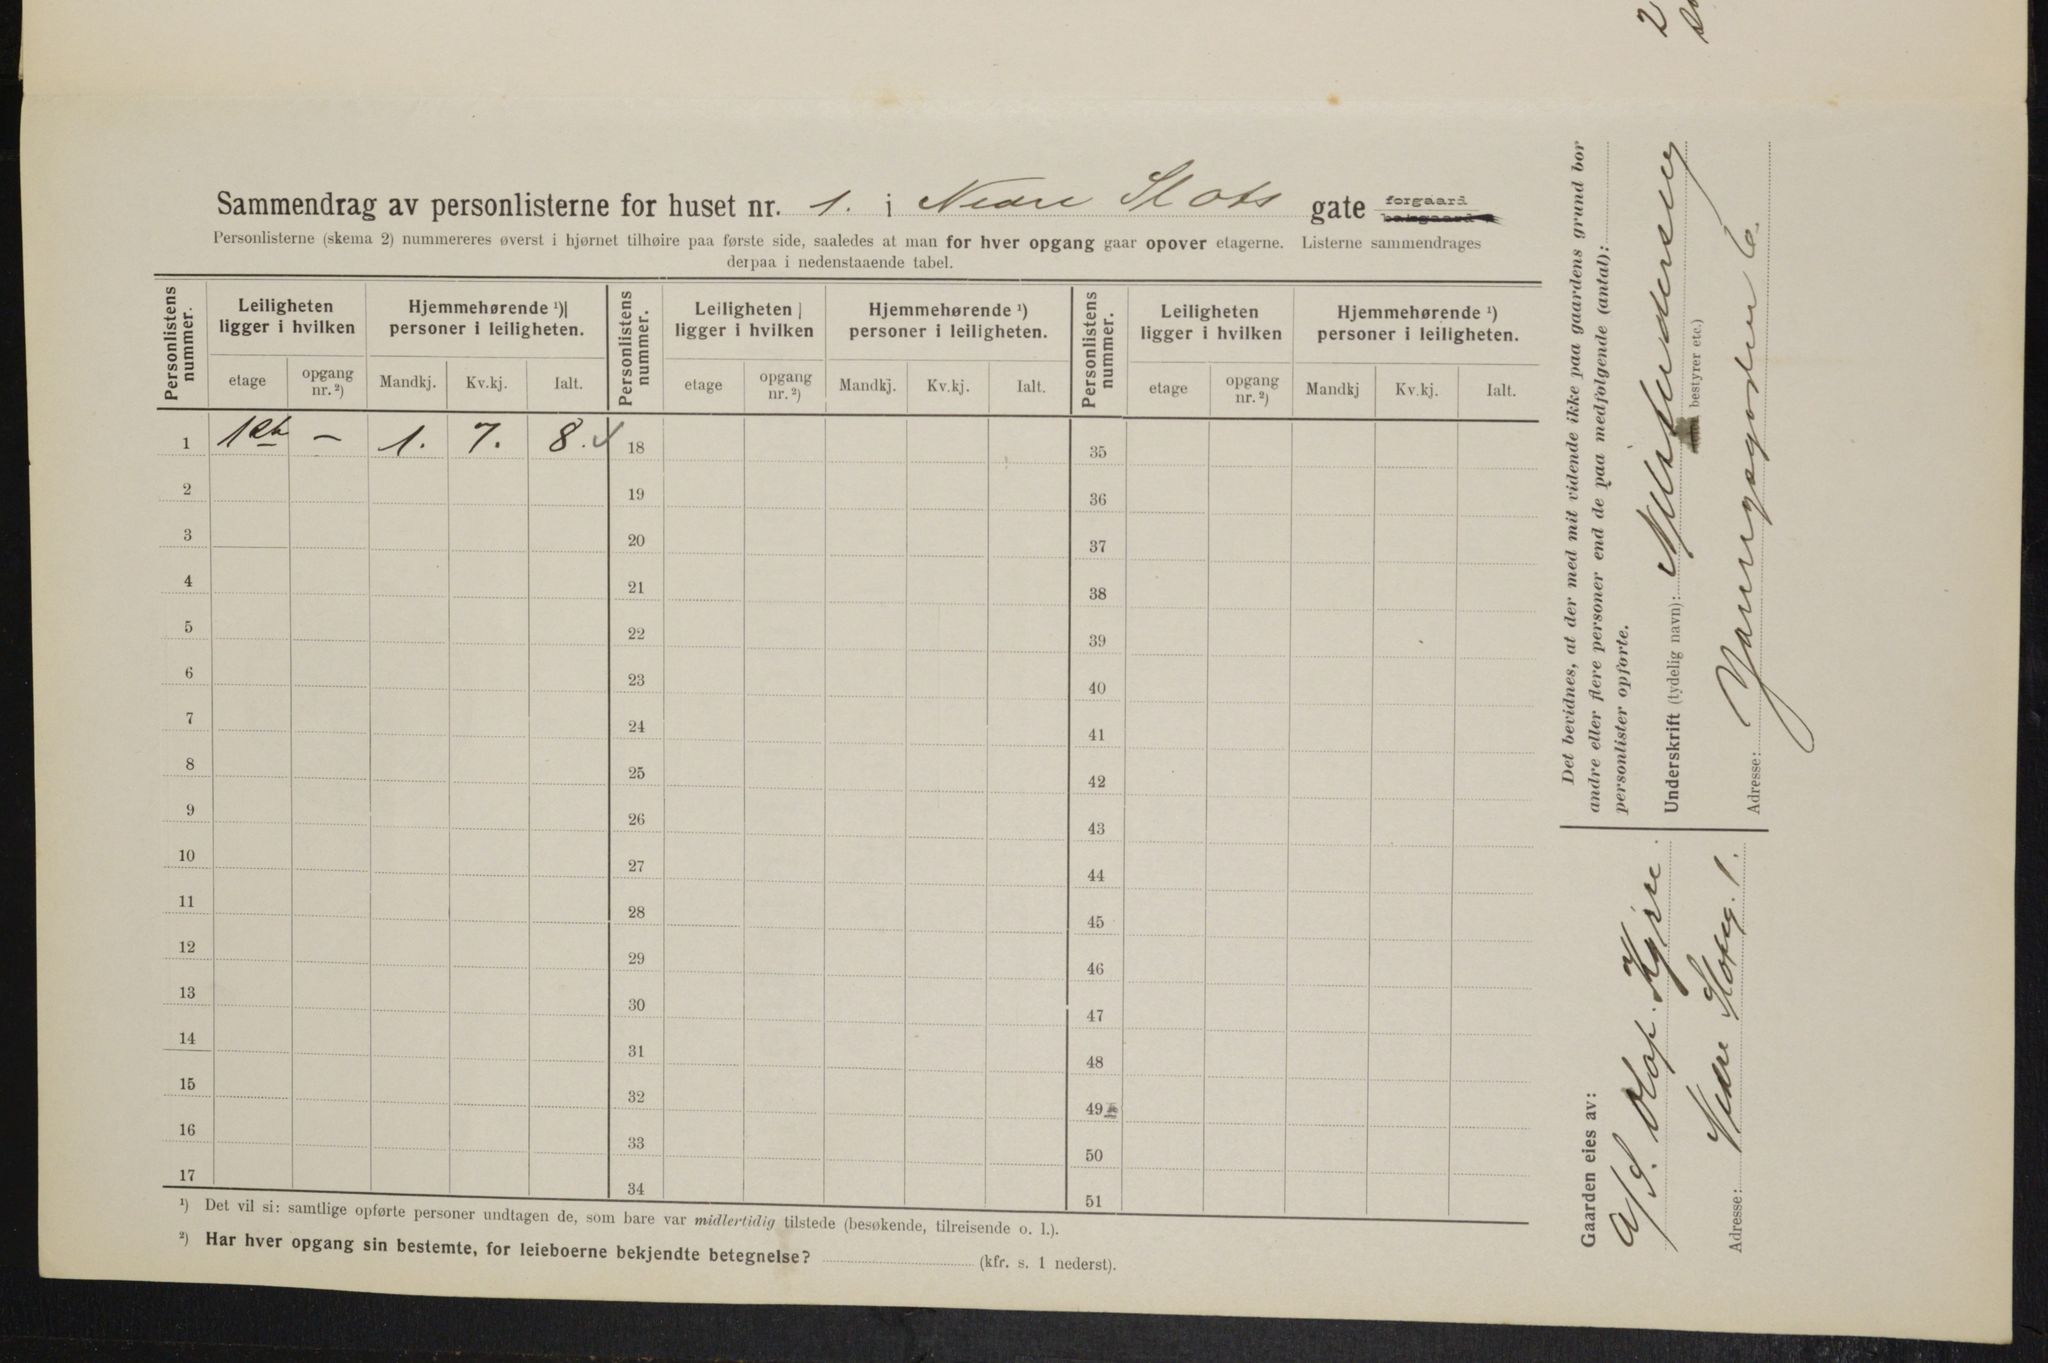 Sammendrag av personlisterne for huset nr. 1. i Nedre Slots gate forgaard bakgaard
Personlisterne (skema 2) nummereres øverst i hjørnet tilhøire paa første side, saaledes at man for hver opgang gaar opover etagerne. Listerne sammendrages
derpaa i nedenstaaende tabel.
Personlistens nummer. Leiligheten ligger i hvilken Hjemmehørende ¹) personer i leiligheten. Personlistens nummer. Leiligheten ligger i hvilken Hjemmehørende ¹) personer i leiligheten. Personlistens nummer. Leiligheten ligger i hvilken Hjemmehørende ¹) personer i leiligheten.
etage opgang nr. ²) Mandkj. Kv.kj. Ialt. etage opgang nr. ²) Mandkj. Kv.kj. Ialt. etage opgang nr. ²) Mandkj Kv.kj. Ialt.
1 1 – 1. 7. 8. 18 35
2 19 36
3 20 37
4 21 38
5 22 39
6 23 40
7 24 41
8 25 42
9 26 43
10 27 44
11 28 45
12 29 46
13 30 47
14 31 48
15 32 49
16 33 50
17 34 51
¹) Det vil si: samtlige opførte personer undtagen de, som bare var midlertidig tilstede (besøkende, tilreisende o. l.).
²) Har hver opgang sin bestemte, for leieboerne bekjendte betegnelse? (kfr. s. 1 nederst).
Det bevidnes, at der med mit vidende ikke paa gaardens grund bor
andre eller flere personer end de paa medfølgende (antal):
personlister opførte.
Underskrift (tydelig navn):
bestyrer etc.)
Adresse:
Gaarden eies av:
A/S. Hop. Kjire.
Adresse: Nedre Slotsg. 1.
2